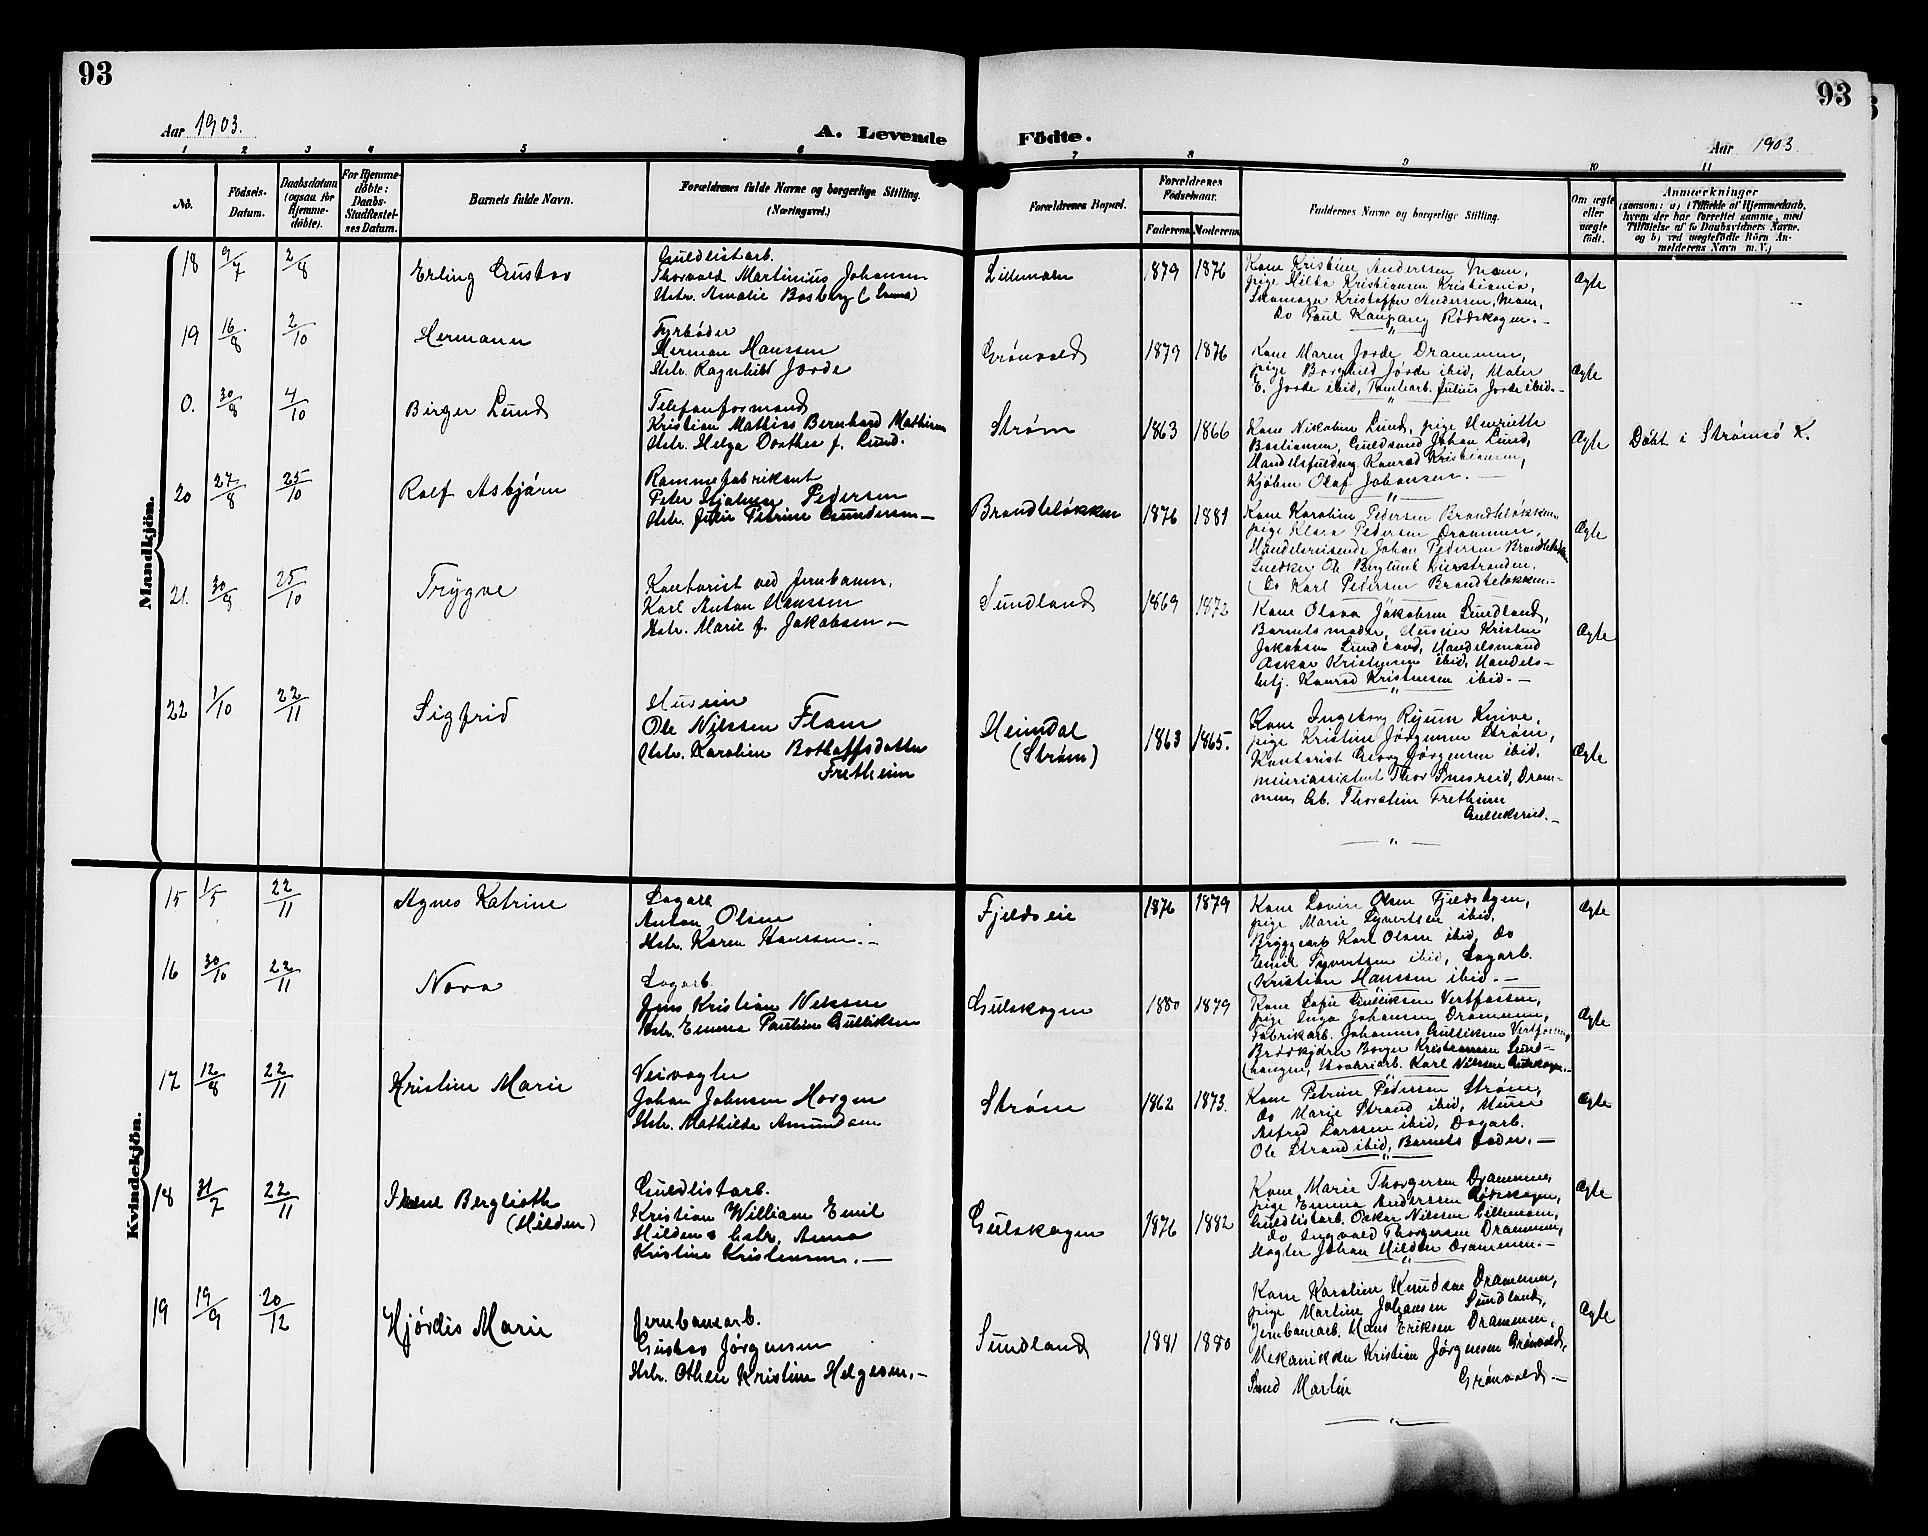 93
93
Aar 1903.
A. Levende Födte.
Aar 1903
1 2 3 4 5 6 7 8 9 10 11
No.
Födsels-Datum.
Daabsdatum (ogsaa for Hjemme-döbte).
For Hjemme-döbte: Daabs-Stadfæstel-ses Datum.
Barnets fulde Navn.
Forældrenes fulde Navne og borgerlige Stilling.
(Næringsvei.)
Forældrenes Bopæl.
Forældrenes Födselsaar.
Faderens Moderens
Faddernes Navne og borgerlige Stilling.
Om ægte eller uægte födt.
Anmærkninger
(saasom: a) i Tilfælde af Hjemmedaab, hvem der har forrettet samme, med Tilföielse af to Daabsvidners Navne, og b) ved uægtefödte Börn An-melderens Navn m. V.)
Mandkjön.
18 9/7 2/8 Erling Gustav
Guldlistarb.
Thorvald Martinius Johansen
Hstr. Amalie Bosberg (Emma)
Lillemoen 1879 1876
Kone Kristine Andersen Moen,
pige Hilda Kristiansen Kristiania,
Skomager Kristoffer Andersen, Moen,
Do Paul Kaupang Rødskogen.-
Ægte
19 16/8 2/10 Hermann
Fyrbøder
Herman Hanssen
Hstr. Ragnhild Jorde
Grønvold 1879 1876
Kone Maren Jorde Drammen,
pige Borghild Jorde ibid, Maler
E. Jorde ibid, Tomtearb. Julius Jorde ibid.-
Ægte
0. 30/8 4/10 Birger Lund
Telefonformand
Kristian Mathias Bernhard Mathisen
Hstr. Helga Dorthea f. Lund.
Strøm 1863 1866
Kone Nikoline Lund, pige Henriette
Bastiansen, Guldsmed Johan Lund,
Handelsfuldmg. Konrad Kristiansen,
Kjøbm Olaf Johansen.-
Ægte
Døbt i Strømsø K.
20 27/8 25/10 Rolf Asbjørn
Rammefabrikant
Peter Hjalmar Pedersen
Hstr. Julie Petrine Gundersen-
Brandteløkken 1876 1881
Kone Karoline Pedersen Brandteløkken
pige Klara Pedersen Drammen,
Handelsreisende Johan Pedersen Brandteløk.
Snedker Ole Berglund Lierstranden.
Do Karl Pedersen Brandteløkken.-
Ægte
21. 30/9 25/10 Trygve
Kontorist ved Jernbanen,
Karl Anton Hanssen
Hstr. Marie f. Jakobsen-
Sundland 1869 1872
Kone Olava Jakobsen Sundland,
Barnets moder, Huseier Kristen
Jakobsen Sundland, Handelsmand
Oskar Kristensen ibid, Handels-
betj. Konrad Kristensen ibid.-
Ægte
22 1/10 22/11 Sigfrid
Huseier
Ole Nilssen Flom
Hstr. Karoline Botlolfsdatter
Fretheim
Heimdal
(Strøm)
1863 1865.
Kone Ingeborg Rijum Knive,
pige Kristine Jørgensen Strøm,
Kontorist Georg Jørgensen ibid,
Meieriassistent Thor Smereid, Dram-
men, Gb. Thorstein Fretheim
Gulliksrud.-
Ægte
Kvindekjön.
15 1/5 22/11 Agnes Katrine
Sagarb.
Anton Olsen
Hstr. Karen Hanssen.-
Fjeldseie 1876 1879
Kone Lovise Olsen Fjeldskogen,
pige Marie Syvertsen ibid,
Bryggearb Karl Olsen ibid, Do
Emil Syvertsen ibid, Sagarb.
Kristian Hanssen ibid.-
Ægte
16 30/10 22/11 Nova
Sagarb.
Jens Kristian Nilssen
Hstr. Emma Pauline Gulliksen
Gulskogen 1880 1879
Kone Sofie Gulliksen Vestfossen,
pige Inga Johansen Drammen,
Fabrikarb. Johannes Gulliksen Vestfossen,
Brødkjører Borger Kristiansen Lund-
hangen, Karl Nilssen Gulskogen.-
Ægte
17 12/8 22/11 Kristine Marie
Veivogter
Johan Johnsen Horgen
Hstr. Mathilde Amundsen
Strøm 1862 1873.
Kone Petrine Pedersen Strøm,
Do Marie Strand ibid, Murer
Alfred Larssen ibid, Dagarb.
Ole Strand ibid, Barnets fader.-
Ægte
18 31/7 22/11 Berglioth
(Hilden)
Guldlistarb.
Kristian William Emil
Hilden & Hstr. Anna
Kristine Kristensen.-
Gulskogen 1876 1882
Kone Marie Thorgersen Drammen,
pige Emma Anderssen Rødskogen,
Guldlistarb. Oskar Nilssen Lillemoen,
Do Ingvald Thorgersen Drammen,
Slagter Johan Hilden Drammen.-
Ægte
19 19/9 20/12 Hjørdis Marie
Jernbanearb.
Gustav Jørgensen
Hstr. Othelie Kristine Helgesen.-
Sundland 1881 1880
Kone Karoline Knudsen Drammen,
pige Martine Johansen Sundland,
Jernbanearb. Hans Eriksen Drammen,
Mekaniker Kristian Jørgensen Grønvold,
Smed Martin Grønvold-
Ægte